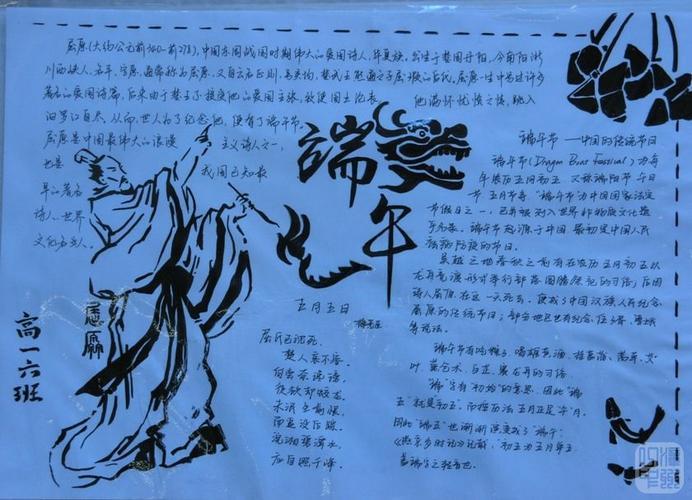 屈原(大约公元前340-前278),中国东周战国时期伟大的爱国诗人,华夏族。出生于楚国丹阳,今南阳淅
川西峡人。名平,字原,通常称为屈原,又自云名正则,号灵均,楚武王熊通之子屈瑕的后代。屈原一生中写过许多
著名的爱国诗篇,后来由于楚王不接受他的爱国主张,致使国土沦丧 他满怀忧愤之情,跳入
汨罗江自尽,从而,世人为了纪念他,便有了端午节。
屈原是中国最伟大的浪漫 主义诗人之一,
也是 我国已知最
早的著名
诗人,世界
文化名人。
端午
五月五日
屈氏已沉死,
楚人哀不容。
何尝奈谗谤,
徒欲却蛟龙。
未泯生前恨,
而追没后踪。
沅湘碧潭水,
应自照千峰。
屈原
高一六班
端午节——中国的传统节日
端午节(Dragon Boat Festival)为每
年农历五月初五,又称端阳节、午日
节、五月节等。“端午节”为中国国家法定
节假日之一,已并被列入世界非物质文化遗
产名录。端午节起源于中国,最初是中国人民
祛病防疫的节日。
吴越之地春秋之前有在农历五月初五以
龙舟竞渡形式举行部落图腾祭祀的习俗;后因
诗人屈原在这一天死去,便成了中国汉族人民纪念
屈原的传统节日;部分地区也有纪念伍子胥、曹娥
等说法。
端午节有吃粽子、喝雄黄酒、挂菖蒲、蒿草、艾
叶、薰苍术、白芷、赛龙舟的习俗。
“端”字有“初始”的意思,因此“端
五”就是“初五”。而按历法五月正是“午”月,
因此“端五”也渐渐演变成了“端午”。
《燕京岁时记》记载:“初五为五月单五,
盖端字之转音也。